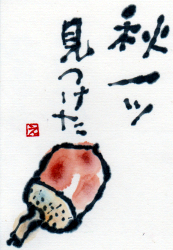 秋一ツ
見つけた